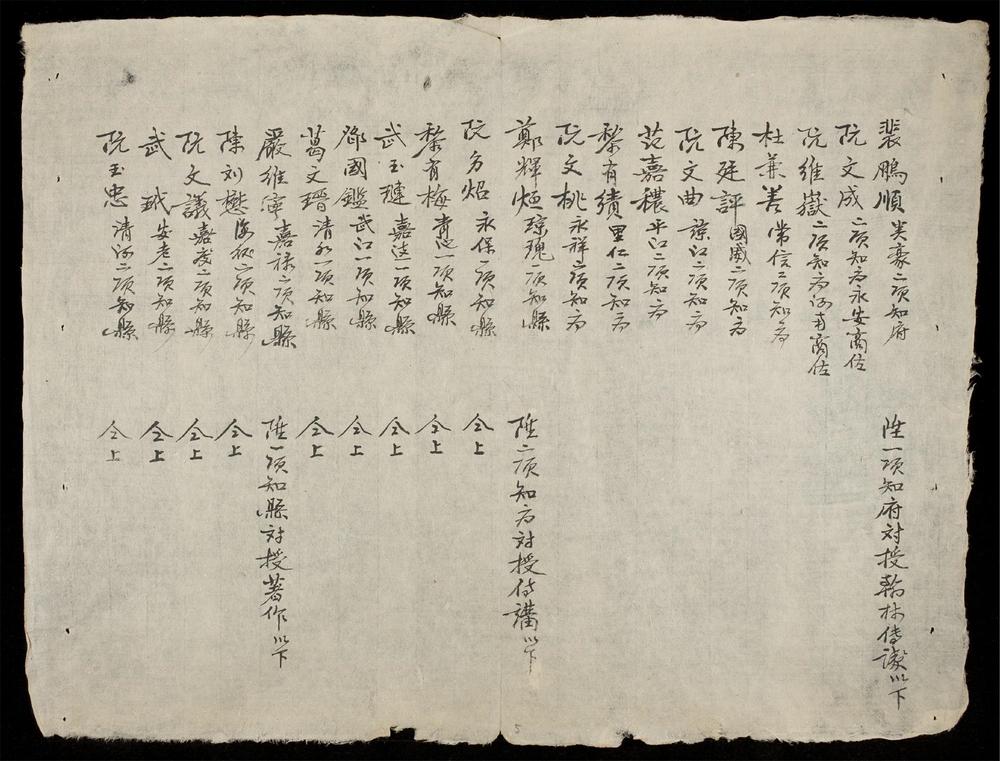 裴鵬順 美豪二項知府 陞一項知府対授翰林侍讀以下
阮文成 二項知府永安商佐
阮維嶽 二項知府河南商佐
杜兼善 常信二項知府
陳廷評 國威二項知府
阮文曲 諒江二項知府
范嘉穠 平江二項知府
黎有績 里仁二項知府
阮文桃 永祥二項知府
鄭輝烜 瓊瑰一項知縣 陞二項知府対授侍講以下
阮方炤 永保一項知縣 仝上
黎有梅 青沔一項知縣 仝上
武玉璉 嘉遠一項知縣 仝上
鄧國鑑 武江一項知縣 仝上
葛文瑨 清水一項知縣 仝上
嚴維寧 嘉禄二項知縣 陞一項知縣対授著作以下
陳刘懋 海二項知縣 仝上
阮文議 嘉二項知縣 仝上
武玳 安老二項知縣 仝上
阮玉忠 清河二項知縣 仝上